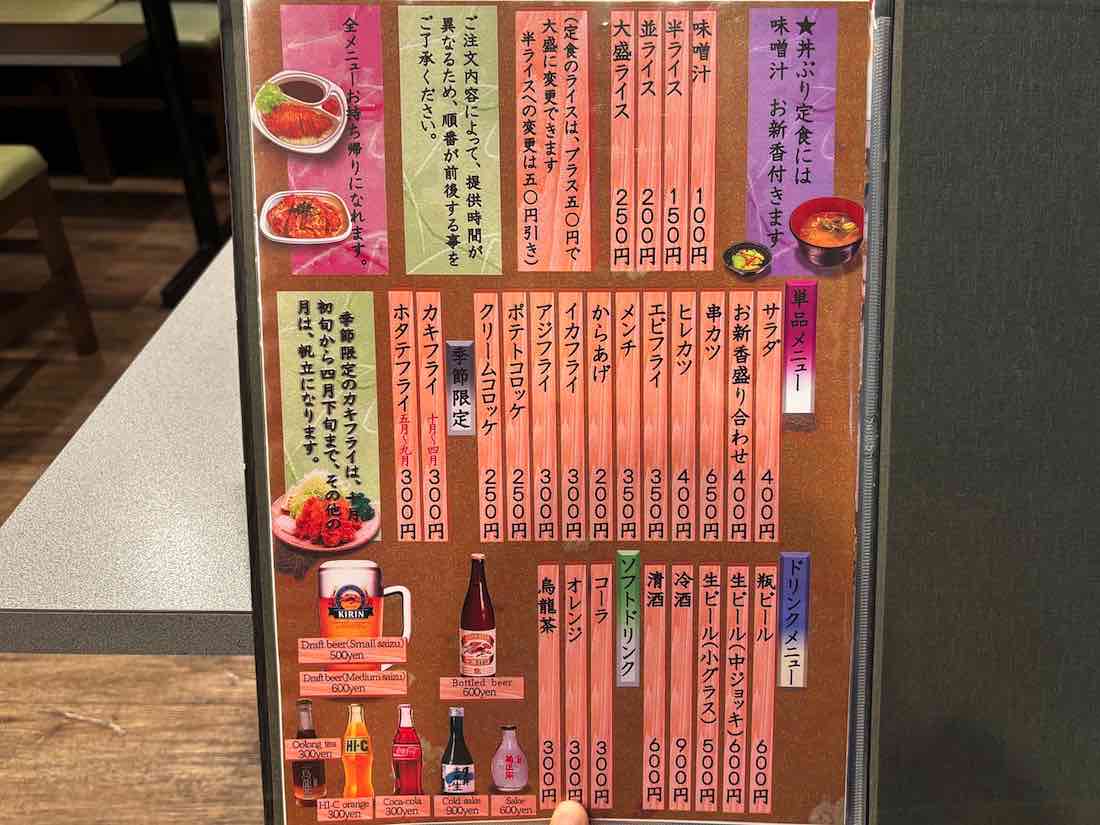 ★丼ぶり定食には
味噌汁 お新香付きます
味噌汁 100円
半ライス 150円
並ライス 200円
大盛ライス 250円
(定食のライスは、プラス五〇円で
大盛に変更できます
半ライスへの変更は五〇円引き)
ご注文内容によって、提供時間が
異なるため、順番が前後する事を
ご了承ください。
全メニューお持ち帰りになれます。
単品メニュー
サラダ 400円
お新香盛り合わせ 400円
串カツ 650円
ヒレカツ 400円
エビフライ 350円
メンチ 350円
からあげ 200円
イカフライ 300円
アジフライ 300円
ポテトコロッケ 250円
クリームコロッケ 250円
季節限定
カキフライ 十月〜四月 300円
ホタテフライ 五月〜九月 300円
季節限定のカキフライは、十月
初旬から四月下旬まで、その他の
月は、帆立になります。
ドリンクメニュー
瓶ビール 600円
生ビール(中ジョッキ) 600円
生ビール(小グラス) 500円
冷酒 900円
清酒 600円
ソフトドリンク
コーラ 300円
オレンジ 300円
烏龍茶 300円
KIRIN
Draft beer(Small saizu)
500yen
Draft beer(Medium saizu)
600yen
Bottled beer
600yen
Oolong tea
300yen
HI-C
HI-C orange
300yen
Coca-cola
300yen
Cold sake
900yen
Sake
600yen